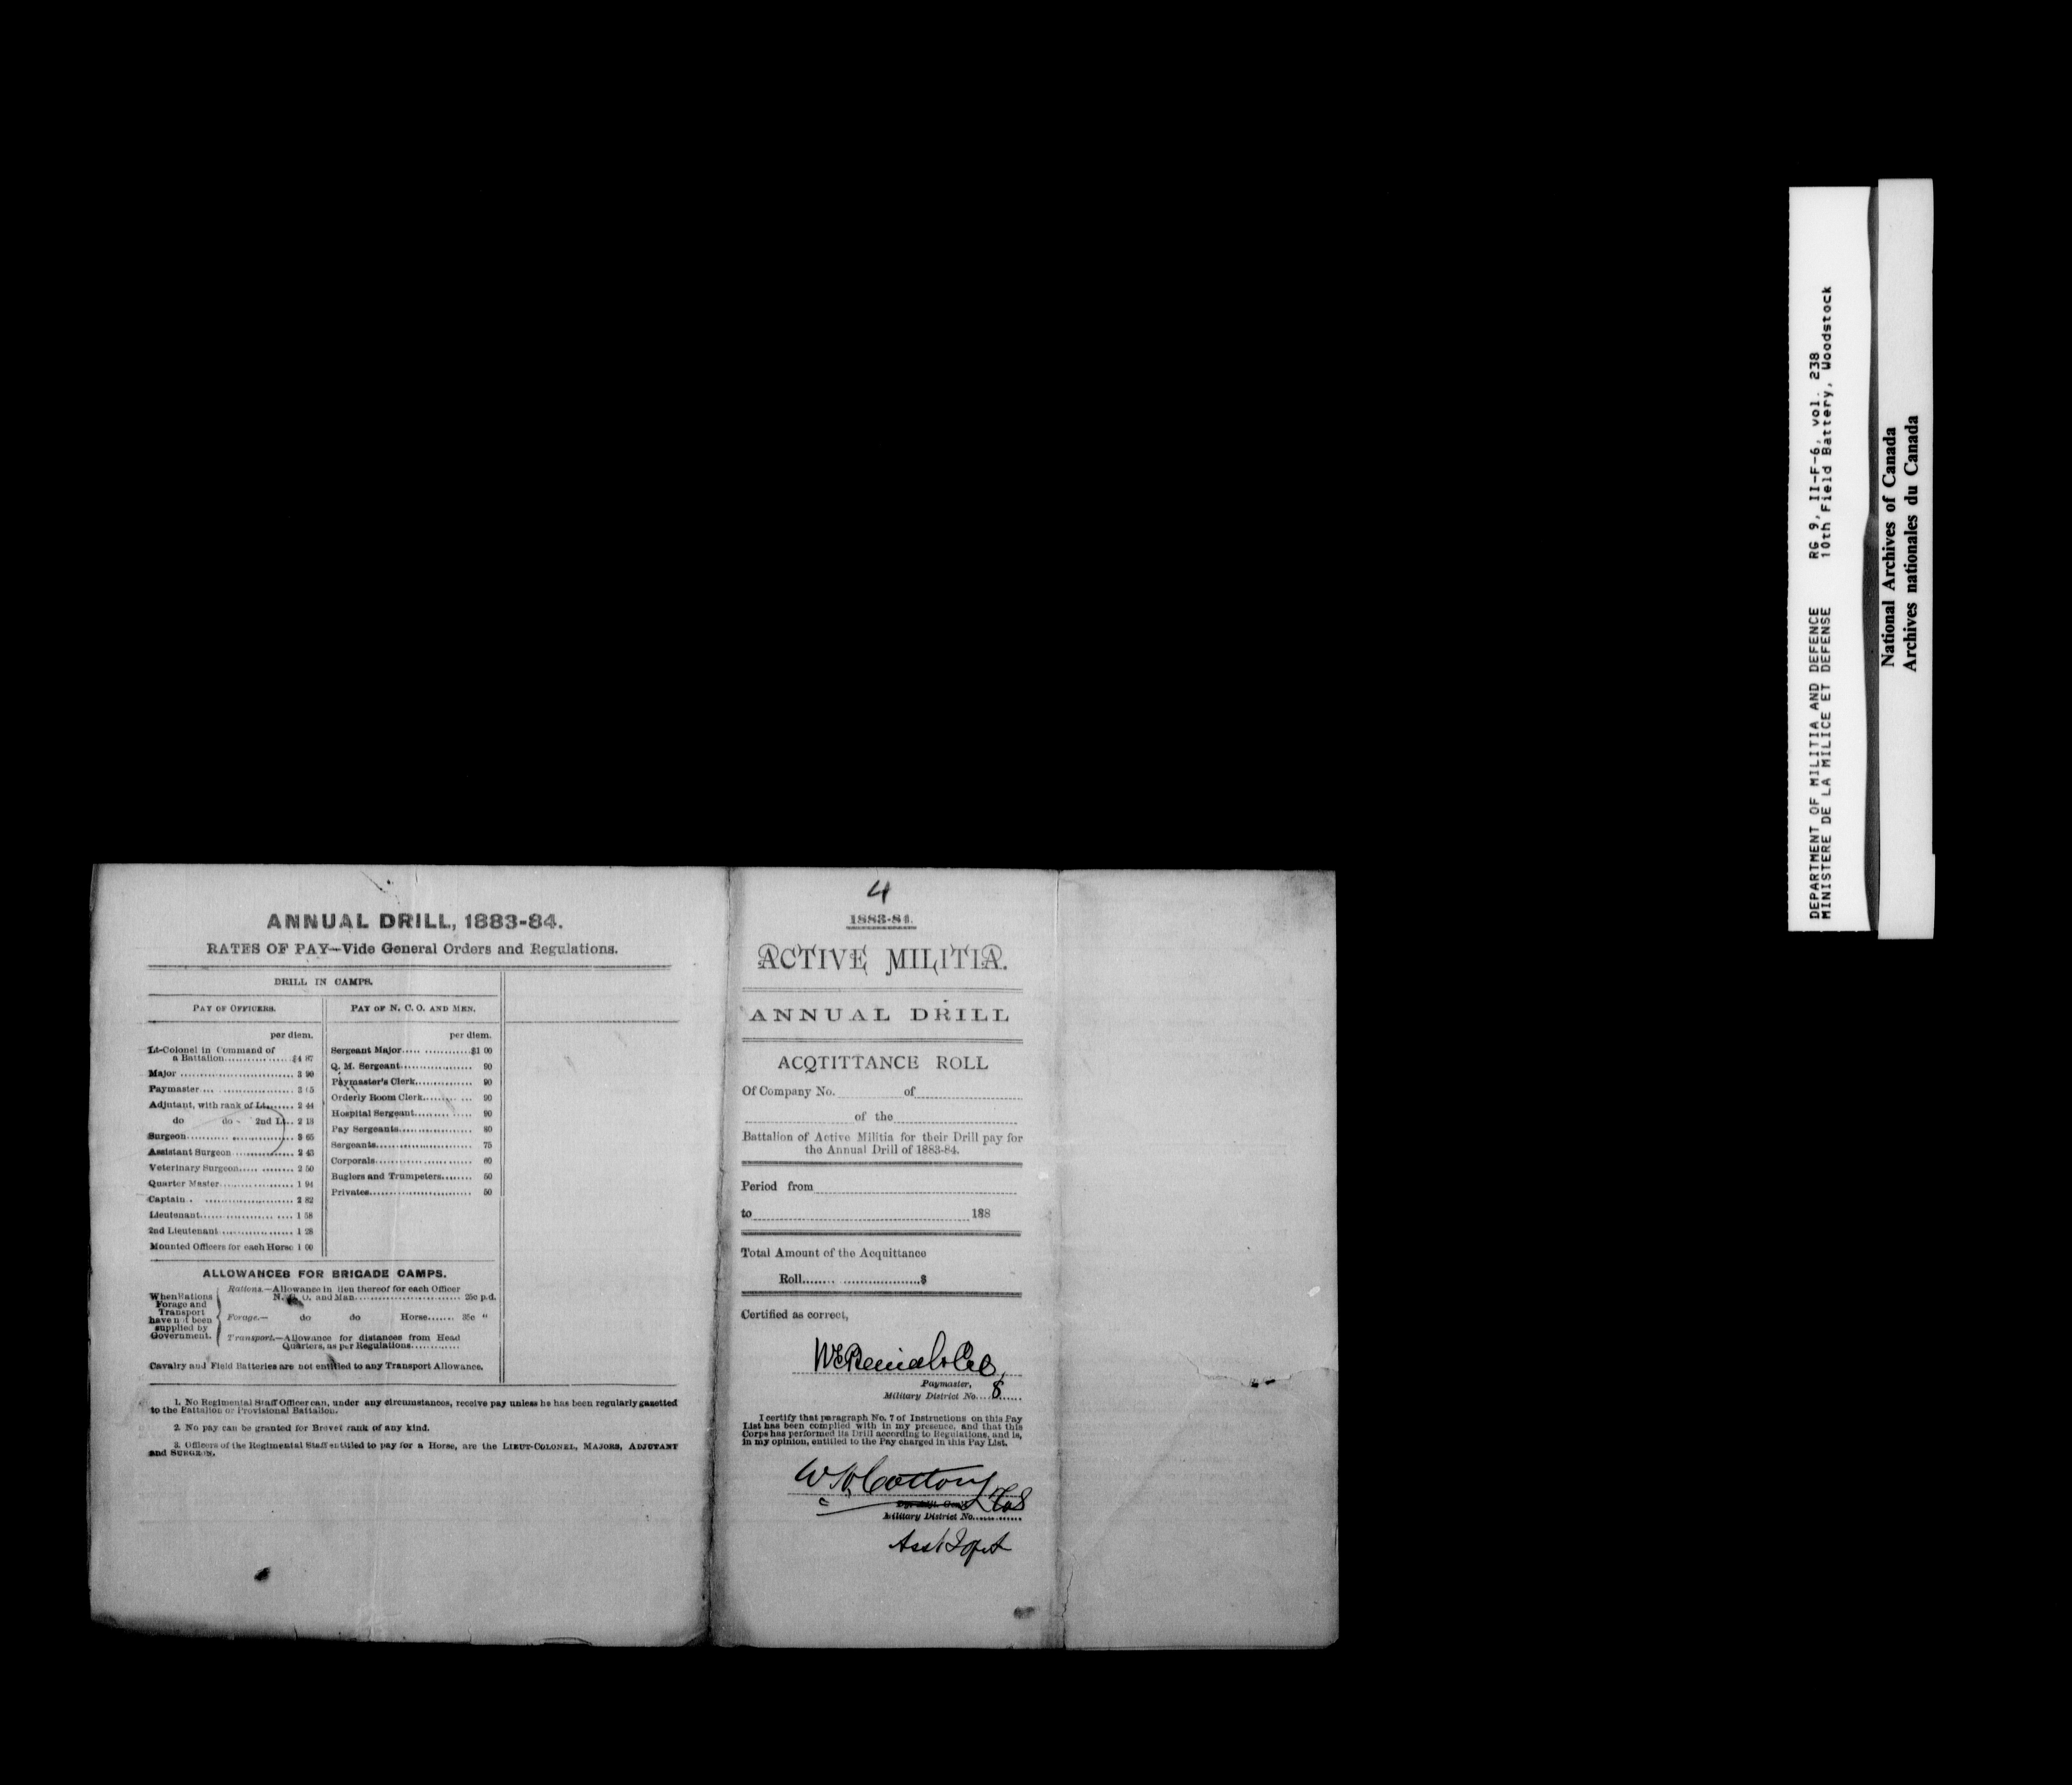 ANNUAL DRILL, 1883-84.
RATES OF PAY—Vide General Orders and Regulations.
DRILL IN CAMPS.
PAY OF OFFICERS.
per diem.
Lt-Colonel in Command of
a Battalion................ $4 87
Major ............................ 3 90
Paymaster .... .................. 3 05
Adjutant, with rank of Lt....... 2 44
do do - 2nd Lt.. 2 13
Surgeon.......... ................ 3 65
Assistant Surgeon ............... 2 43
Veterinary Surgeon..... ........ 2 50
Quarter Master.................. 1 94
Captain . ...................... 2 82
Lieutenant................... .... 1 58
2nd Lieutenant ................. 1 28
Mounted Officers for each Horse 1 00
PAY OF N. C. O. AND MEN.
per diem.
Sergeant Major..... ............$1 00
Q. M. Sergeant.................. 90
Paymaster's Clerk.............. 90
Orderly Room Clerk........ ... 90
Hospital Sergeant......... ..... 90
Pay Sergeants.................. 80
Sergeants........................ 75
Corporals........................ 60
Buglers and Trumpeters........ 50
Privates......................... 50
ALLOWANCES FOR BRIGADE CAMPS.
When Rations
Forage and
Transport
have not been
supplied by
Government.
Rations.—Allowance in lieu thereof for each Officer
N. C. O. and Man.......................... 25c p.d.
Forage.— do do Horse....... 35c "
Transport.—Allowance for distances from Head
Quarters, as per Regulations............
Cavalry and Field Batteries are not entitled to any Transport Allowance.
1. No Regimental Staff Officer can, under any circumstances, receive pay unless he has been regularly gazetted
to the Battalion or Provisional Battalion.
2. No pay can be granted for Brevet rank of any kind.
3. Officers of the Regimental Staff entitled to pay for a Horse, are the LIEUT-COLONEL, MAJORS, ADJUTANT
and SURGEON.
4
1883-84.
ACTIVE MILITIA.
ANNUAL DRILL
ACQTITTANCE ROLL
Of Company No. of
of the
Battalion of Active Militia for their Drill pay for
the Annual Drill of 1883-84.
Period from
to 188
Total Amount of the Acquittance
Roll........ ......................$
Certified as correct,
Paymaster,
Military District No....8......
I certify that paragraph No. 7 of Instructions on this Pay
List has been complied with in my presence, and that this
Corps has performed its Drill according to Regulations, and is,
in my opinion, entitled to the Pay charged in this Pay List.
W H Cotton
Military District No............
DEPARTMENT OF MILITIA AND DEFENCE RG 9, II-F-6, vol. 238
MINISTERE DE LA MILICE ET DEFENSE 10th Field Battery, Woodstock
National Archives of Canada
Archives nationales du Canada